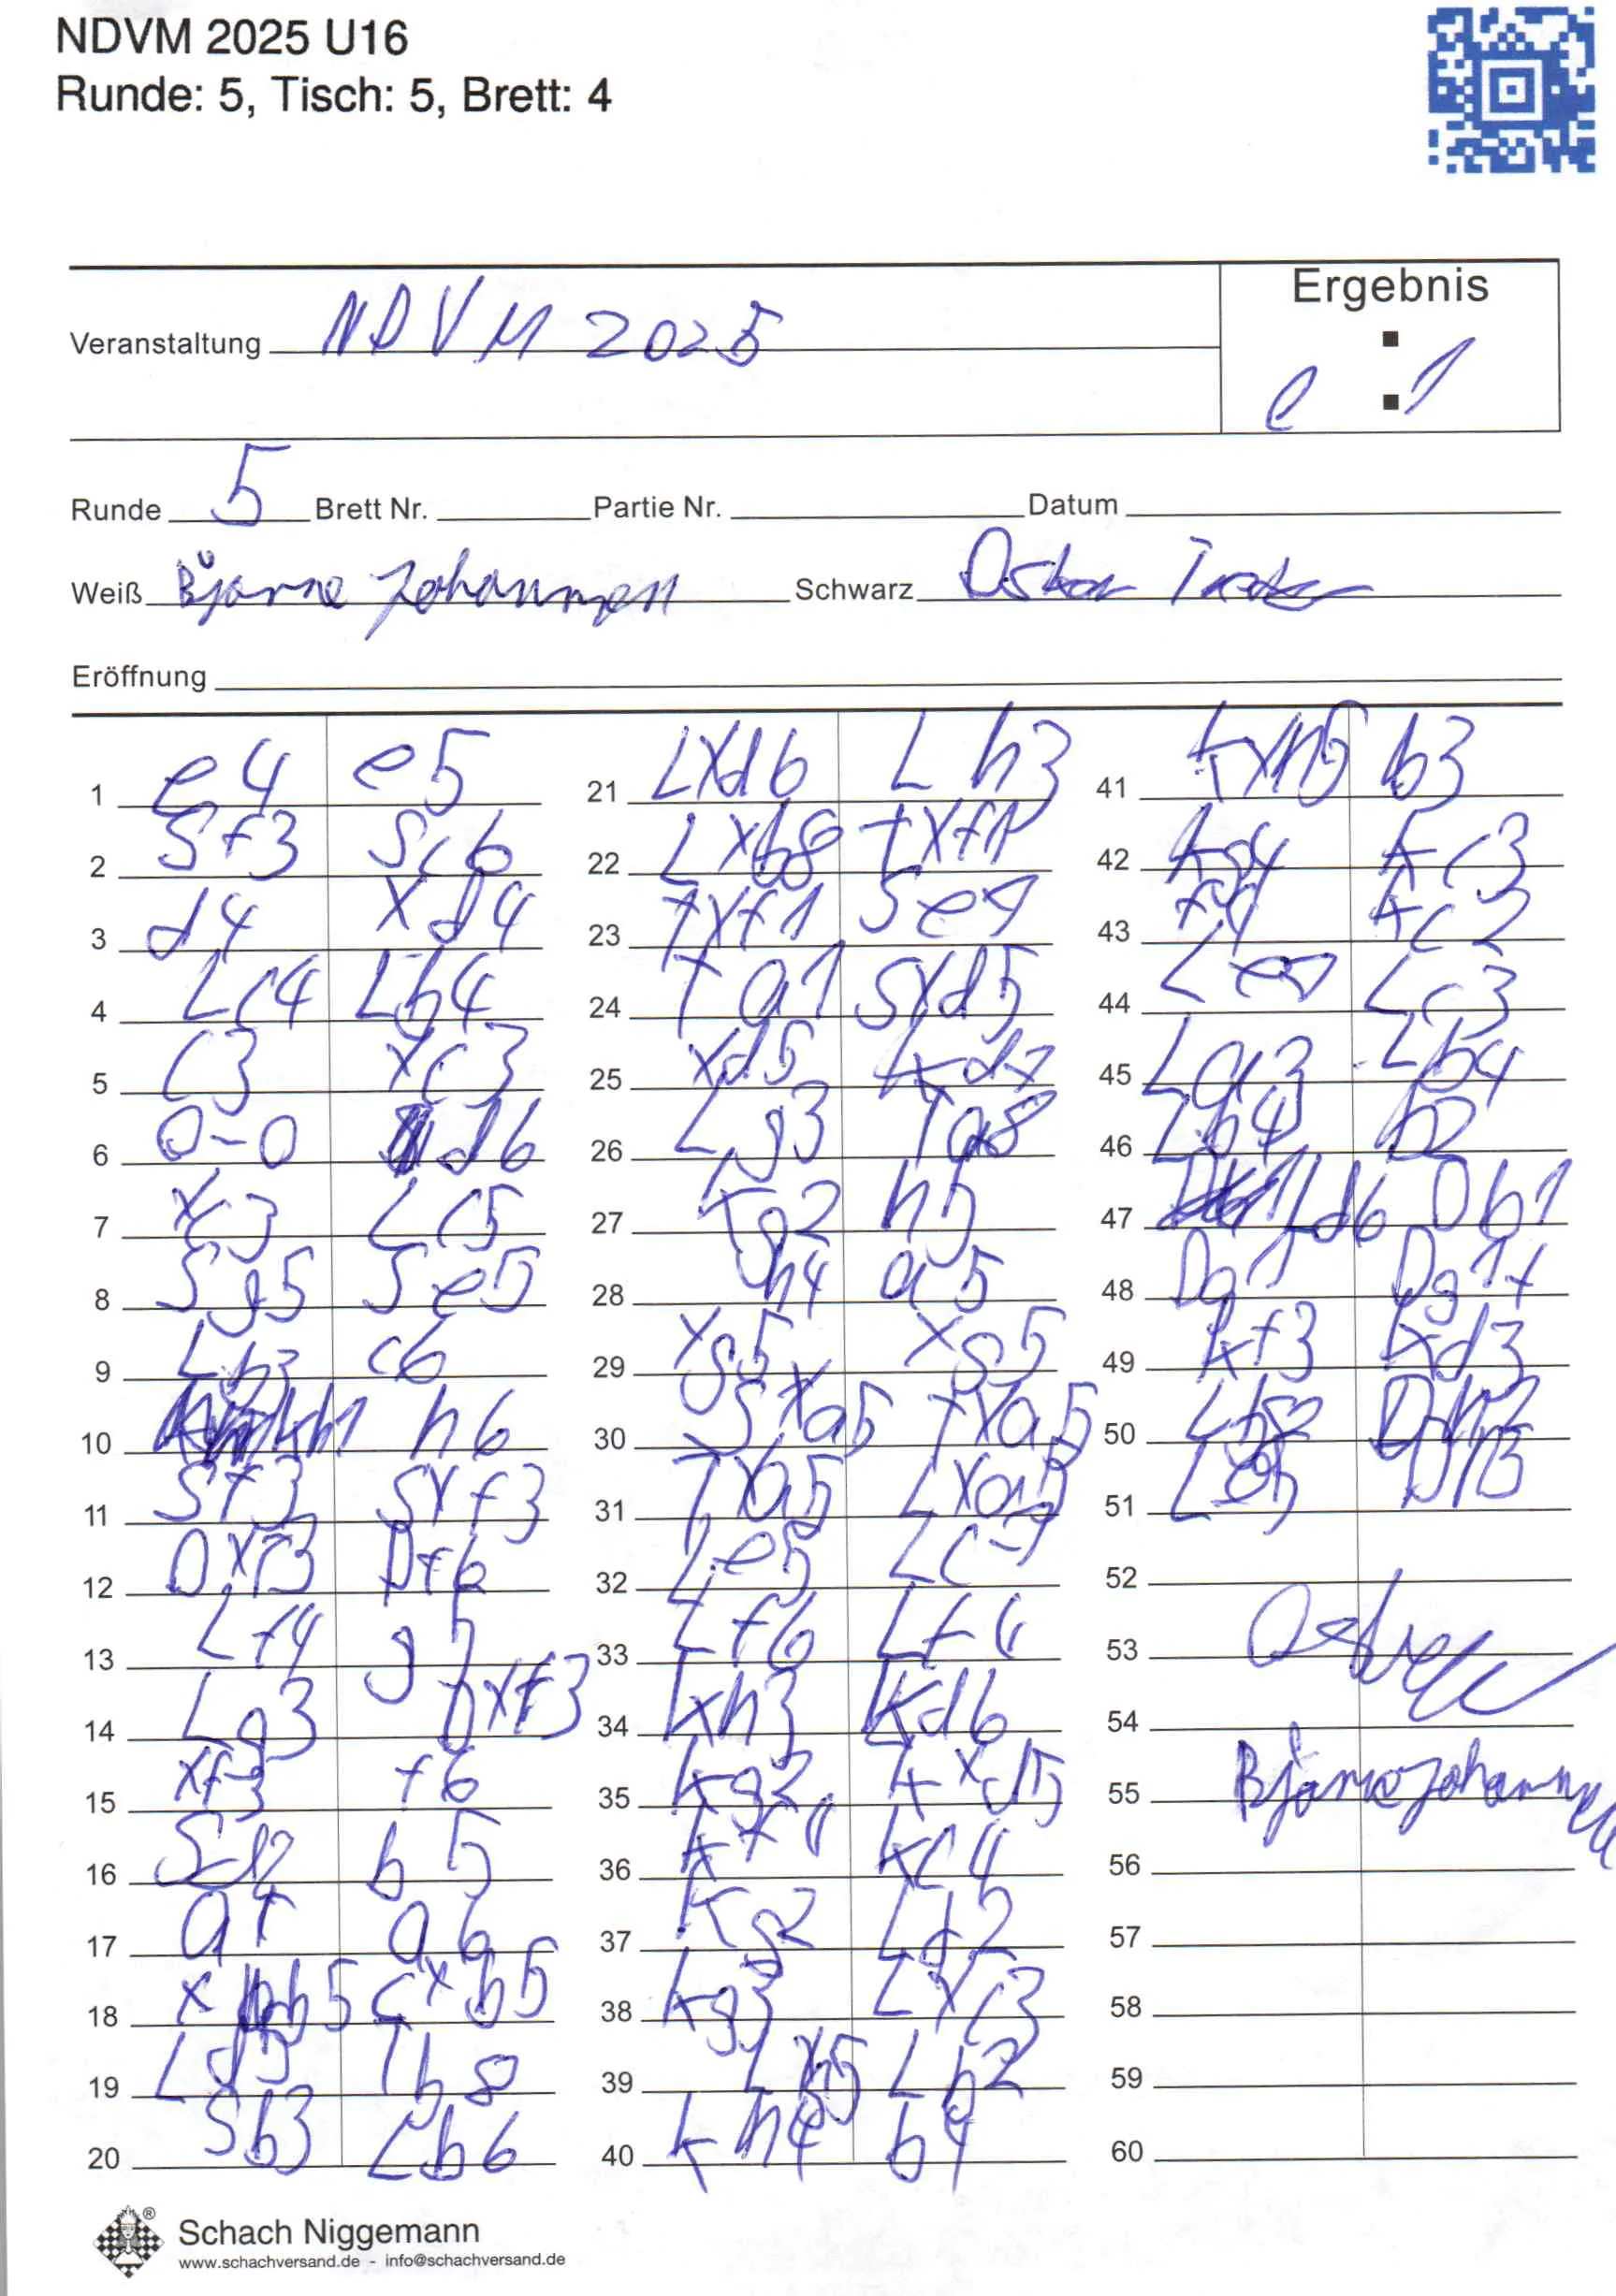 NDVM 2025 U16
Runde: 5, Tisch: 5, Brett: 4
Ergebnis
Veranstaltung NDVM 2025
0 : 1
Runde 5 Brett Nr. Partie Nr. Datum
Weiß Bjarne Johannsen Schwarz Oskar
Eröffnung
1 e4 e5
2 Sf3 Sc6
3 d4 xd4
4 Lc4 Lb4
5 c3 xc3
6 0-0 d6
7 xc3 Lc5
8 Sg5 Se5
9 Lb3 c6
10 Kh1 h6
11 Sf3 Sxf3
12 Dxf3 Df6
13 Lf4 g5
14 Lg3 Dxf3
15 xf3 f6
16 Sd2 b5
17 a4 a6
18 xb5 cxb5
19 Ld5 Tb8
20 Sb3 Lb6
21 Lxd6 Lh3
22 Lxb8 Lxf1
23 Txf1 Se7
24 Ta1 Sxd5
25 xd5 Kd7
26 Lg3 Ta8
27 Kg2 h5
28 h4 a5
29 xg5 xg5
30 Sxa5 Txa5
31 Txa5 Lxa5
32 Le5 Lc7
33 Lf6 Lf4
34 Kh3 Kd6
35 Kg2 Kxd5
36 Kf1 Kc4
37 Kg2 Ld2
38 Kg3 Lxc3
39 Lxg5 Lb2
40 Kh4 b4
41 Kxh5 b3
42 Kg4 Kc3
43 f4 Kc2
44 Le7 Lc3
45 La3 Lb4
46 Lb4 b2
47 Ld6 Db1
48 Dg1+
49 Kf3 Kd3
50 Lb8 Dh2
51 Le5 Dh5
52
53
54
55 Bjarne Johannsen
56
57
58
59
60
Schach Niggemann
®
www.schachversand.de - info@schachversand.de